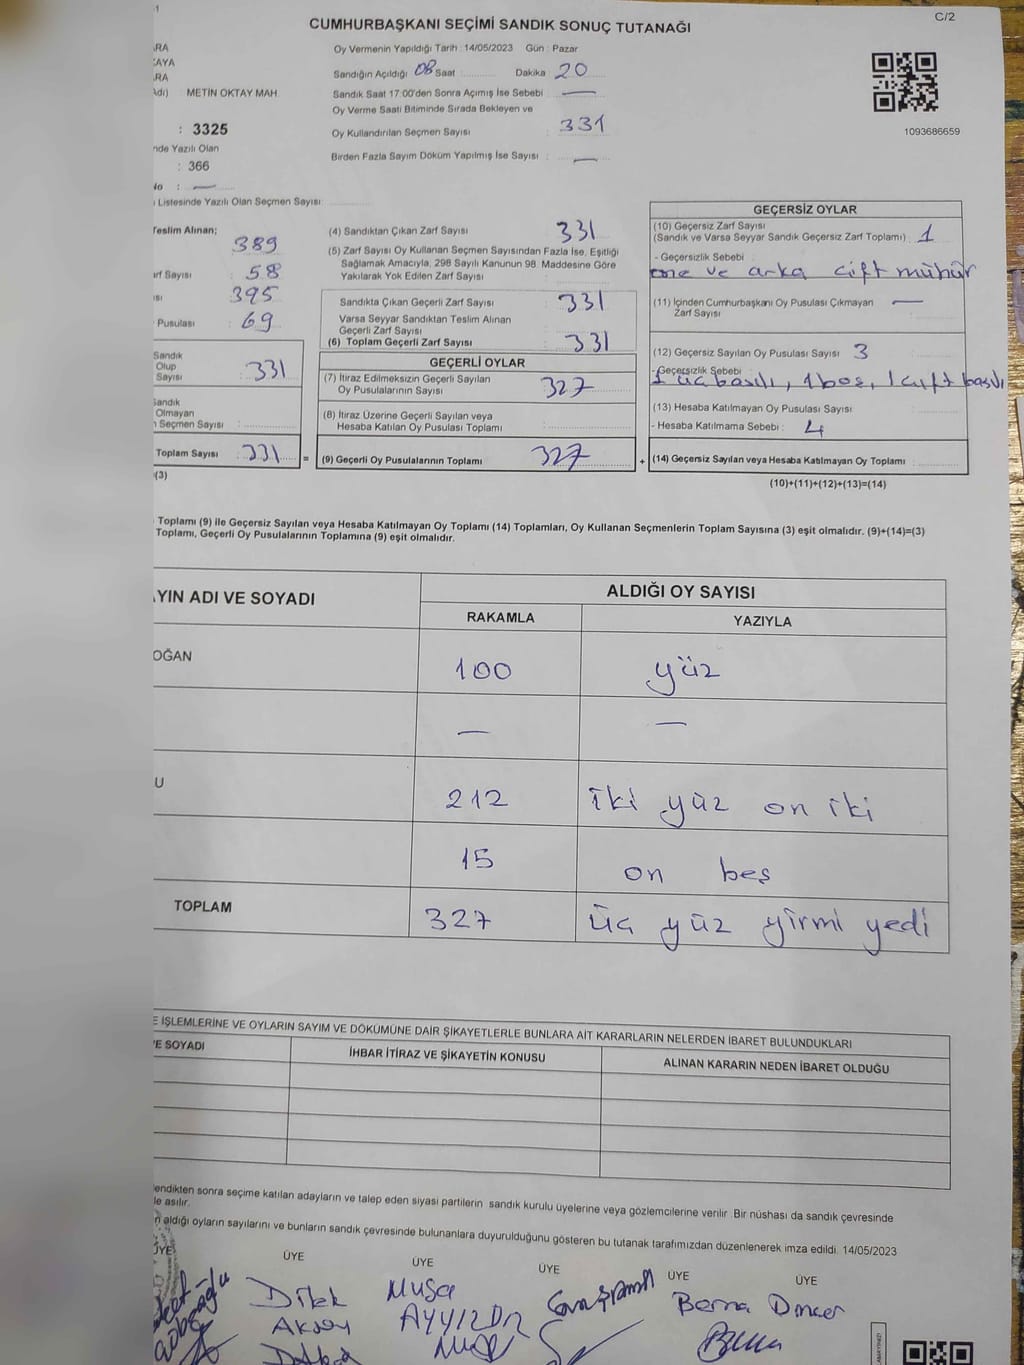 C/2
CUMHURBAŞKANI SEÇİMİ SANDIK SONUÇ TUTANAĞI
Oy Vermenin Yapıldığı Tarih :14/05/2023 Gün : Pazar
Sandığın Açıldığı 08 Saat Dakika 20
METİN OKTAY MAH.
Sandık Saat 17:00'den Sonra Açımış İse Sebebi —
Oy Verme Saati Bitiminde Sırada Bekleyen ve
Oy Kullandırılan Seçmen Sayısı : 331
Birden Fazla Sayım Döküm Yapılmış İse Sayısı : —
1093686659
: 3325
nde Yazılı Olan
: 366
No : —
Listesinde Yazılı Olan Seçmen Sayısı:
Teslim Alınan;
389
Sayısı : 58
: 395
Pusulası : 69
Sandık
Olup
Sayısı : 331
Sandık
Olmayan
Seçmen Sayısı :
Toplam Sayısı : 331 =
(3)
(4) Sandıktan Çıkan Zarf Sayısı : 331
(5) Zarf Sayısı Oy Kullanan Seçmen Sayısından Fazla İse, Eşitliği
Sağlamak Amacıyla, 298 Sayılı Kanunun 98. Maddesine Göre
Yakılarak Yok Edilen Zarf Sayısı :
Sandıkta Çıkan Geçerli Zarf Sayısı : 331
Varsa Seyyar Sandıktan Teslim Alınan
Geçerli Zarf Sayısı
(6) Toplam Geçerli Zarf Sayısı : 331
GEÇERLİ OYLAR
(7) İtiraz Edilmeksizin Geçerli Sayılan
Oy Pusulalarının Sayısı : 327
(8) İtiraz Üzerine Geçerli Sayılan veya
Hesaba Katılan Oy Pusulası Toplamı :
(9) Geçerli Oy Pusulalarının Toplamı : 327 +
GEÇERSİZ OYLAR
(10) Geçersiz Zarf Sayısı
(Sandık ve Varsa Seyyar Sandık Geçersiz Zarf Toplamı) : 1
- Geçersizlik Sebebi :
öne ve arka çift mühür
(11) İçinden Cumhurbaşkanı Oy Pusulası Çıkmayan —
Zarf Sayısı :
(12) Geçersiz Sayılan Oy Pusulası Sayısı : 3
- Geçersizlik Sebebi :
1 üç basılı, 1 boş, 1 çift basılı
(13) Hesaba Katılmayan Oy Pusulası Sayısı :
- Hesaba Katılmama Sebebi : 4
(14) Geçersiz Sayılan veya Hesaba Katılmayan Oy Toplamı :
(10)+(11)+(12)+(13)=(14)
Toplamı (9) ile Geçersiz Sayılan veya Hesaba Katılmayan Oy Toplamı (14) Toplamları, Oy Kullanan Seçmenlerin Toplam Sayısına (3) eşit olmalıdır. (9)+(14)=(3)
Toplamı, Geçerli Oy Pusulalarının Toplamına (9) eşit olmalıdır.
AYIN ADI VE SOYADI
ALDIĞI OY SAYISI
RAKAMLA YAZIYLA
DOĞAN 100 yüz
— —
U 212 iki yüz on iki
15 on beş
TOPLAM 327 üç yüz yirmi yedi
E İŞLEMLERİNE VE OYLARIN SAYIM VE DÖKÜMÜNE DAİR ŞİKAYETLERLE BUNLARA AİT KARARLARIN NELERDEN İBARET BULUNDUKLARI
VE SOYADI İHBAR İTİRAZ VE ŞİKAYETİN KONUSU ALINAN KARARIN NEDEN İBARET OLDUĞU
lendikten sonra seçime katılan adayların ve talep eden siyasi partilerin sandık kurulu üyelerine veya gözlemcilerine verilir. Bir nüshası da sandık çevresinde
le asılır.
n aldığı oyların sayılarını ve bunların sandık çevresinde bulunanlara duyurulduğunu gösteren bu tutanak tarafımızdan düzenlenerek imza edildi. 14/05/2023
ÜYE ÜYE ÜYE ÜYE ÜYE ÜYE
Dilek Musa Berna Dincer
Aksoy